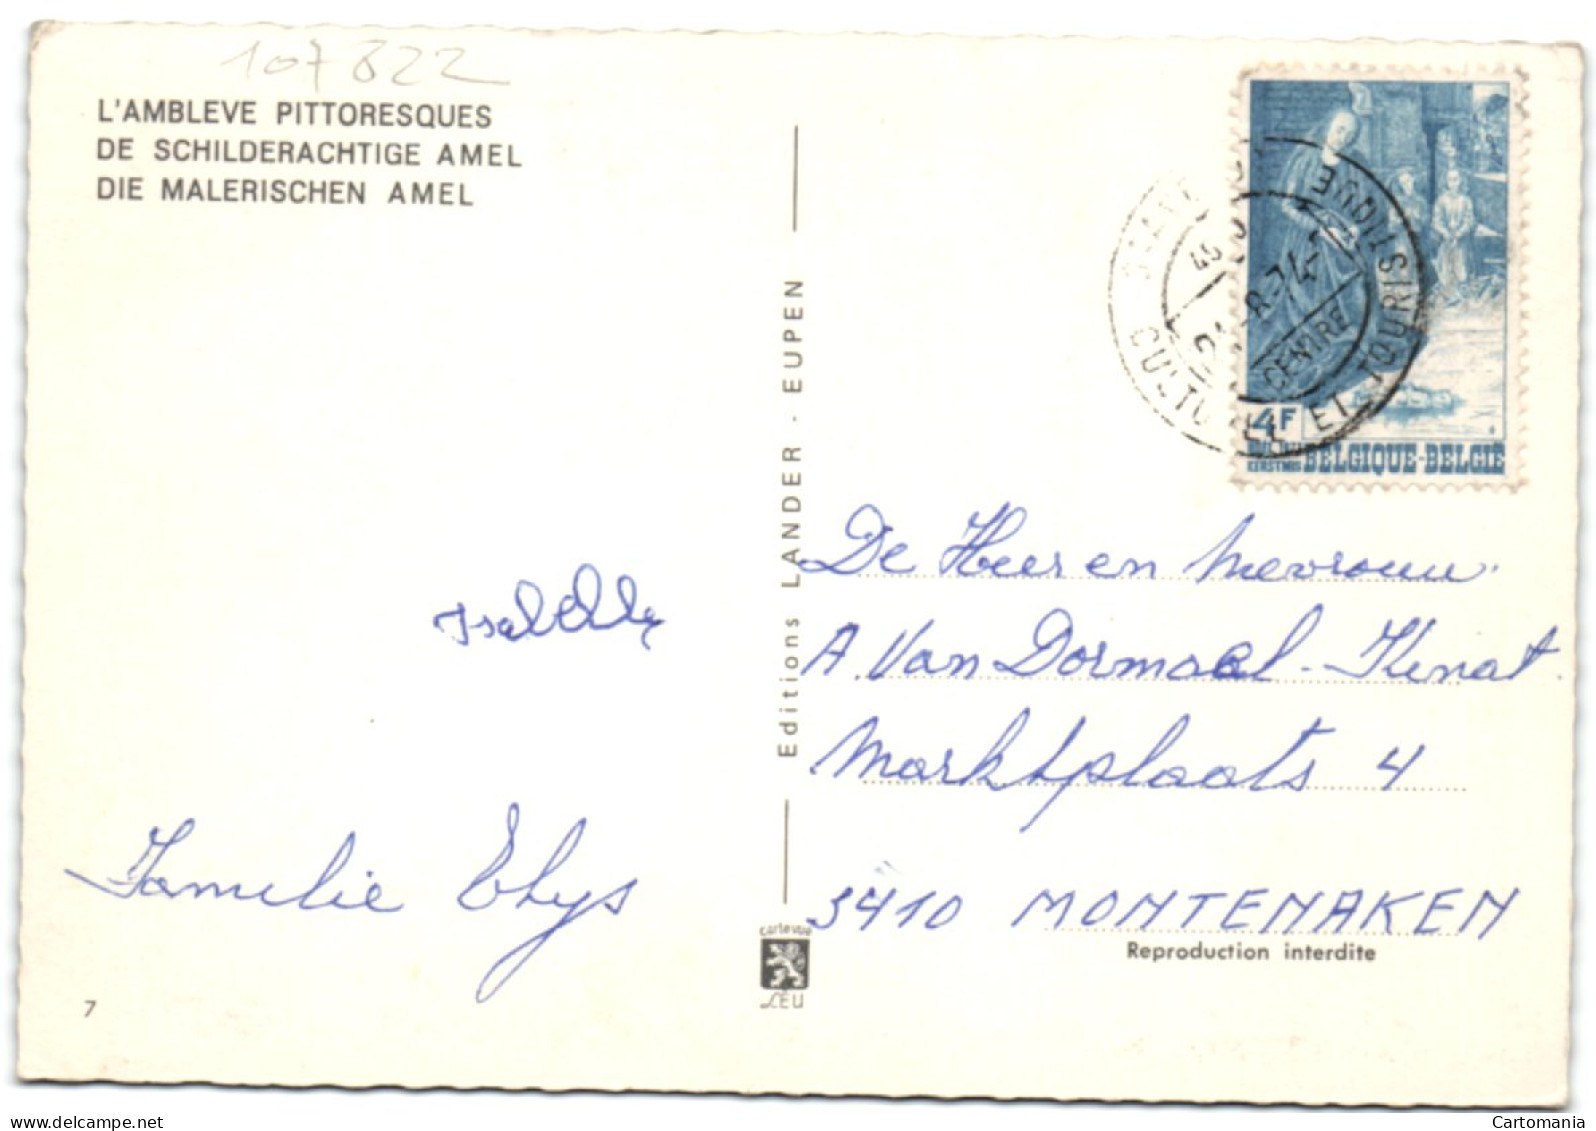 107822
L'AMBLEVE PITTORESQUES
DE SCHILDERACHTIGE AMEL
DIE MALERISCHEN AMEL
Familie Thys
7
Editions LANDER - EUPEN
cartevue
LEU
CULTUREL ET TOURISTIQUE
CENTRE
-8-74
4F
KERSTMIS BELGIQUE-BELGIË
De Heer en Mevrouw
A. Van Dormaal-Kenat
Marktplaats 4
3410 MONTENAKEN
Reproduction interdite
Cartomania
www.delcampe.net